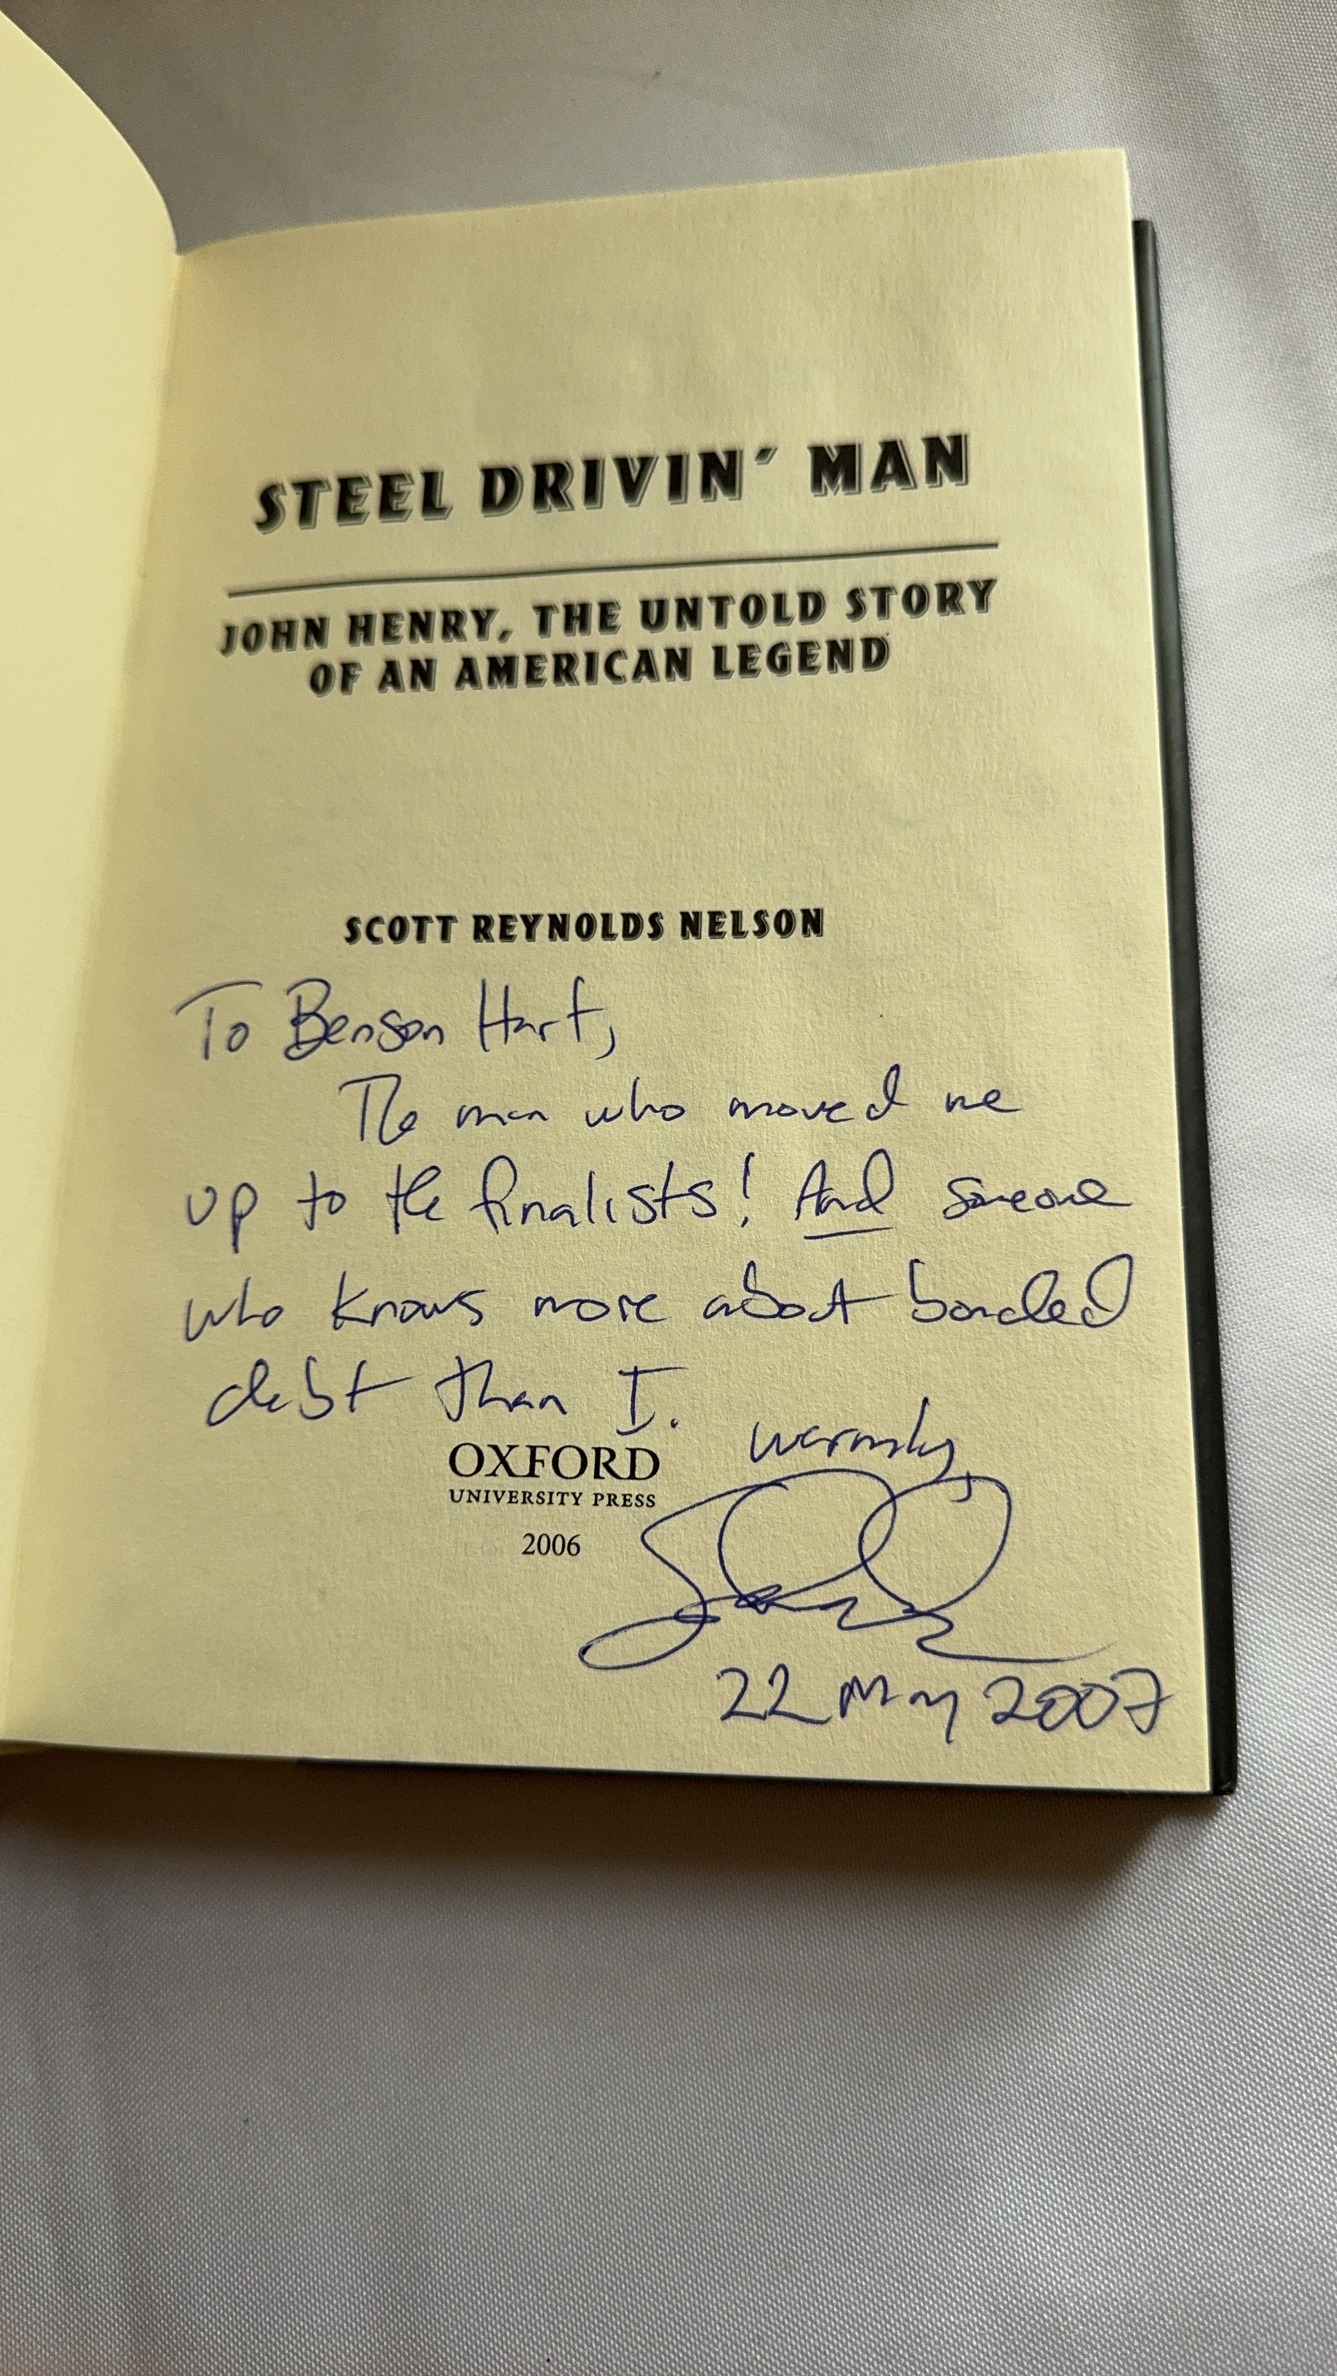 STEEL DRIVIN' MAN
JOHN HENRY, THE UNTOLD STORY
OF AN AMERICAN LEGEND
SCOTT REYNOLDS NELSON
To Benson Hart,
The man who moved me
up to the finalists! And someone
who knows more about bonded
debt than I.
warmly,
OXFORD
UNIVERSITY PRESS
2006
22 May 2007